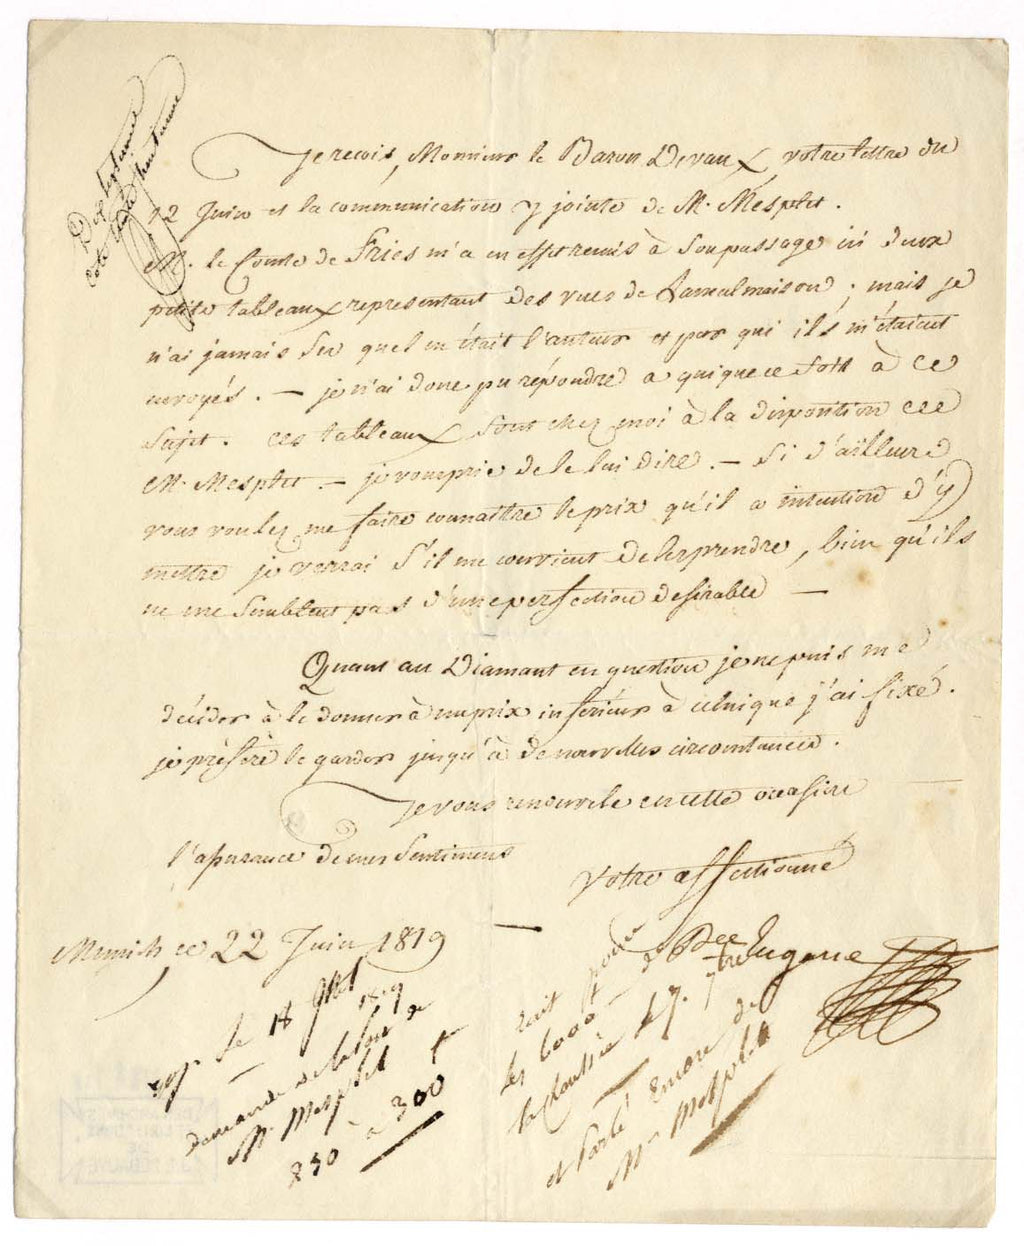 Je reçois, Monsieur le Baron Devaux, votre lettre du
12 Juin et la communication y jointe de M. Mesplet.
M. le Comte de Fries m'a en effet remis à son passage ici deux
petits tableaux representant des vues de Lamalmaison ; mais je
n'ai jamais su quel en était l'auteur et par qui ils m'étaient
envoyés. — je n'ai donc pu répondre a quique ce soit à ce
sujet. ces tableaux sont chez moi à la disposition de
M. Mesplet. — je vous prie de le lui dire. — Si d'ailleurs
vous voulez me faire connaître le prix qu'il a intention d'y
mettre je verrai s'il me convient de les prendre, bien qu'ils
ne me semblent pas d'une perfection desirable —
Quant au Diamant en question je ne puis me
décider à le donner à un prix inférieur à celui que j'ai fixé.
je préfère le garder jusqu'à de nouvelles circonstances.
Je vous renouvele en cette occasion
l'assurance de mes sentimens
Votre affectionné
Eugene
Munich ce 22 Juin 1819
le 18 1819
demande de la part de
M. Mesplet
250 à 300 f
les 6000
et Parlé Encore de
Mr Mesplet